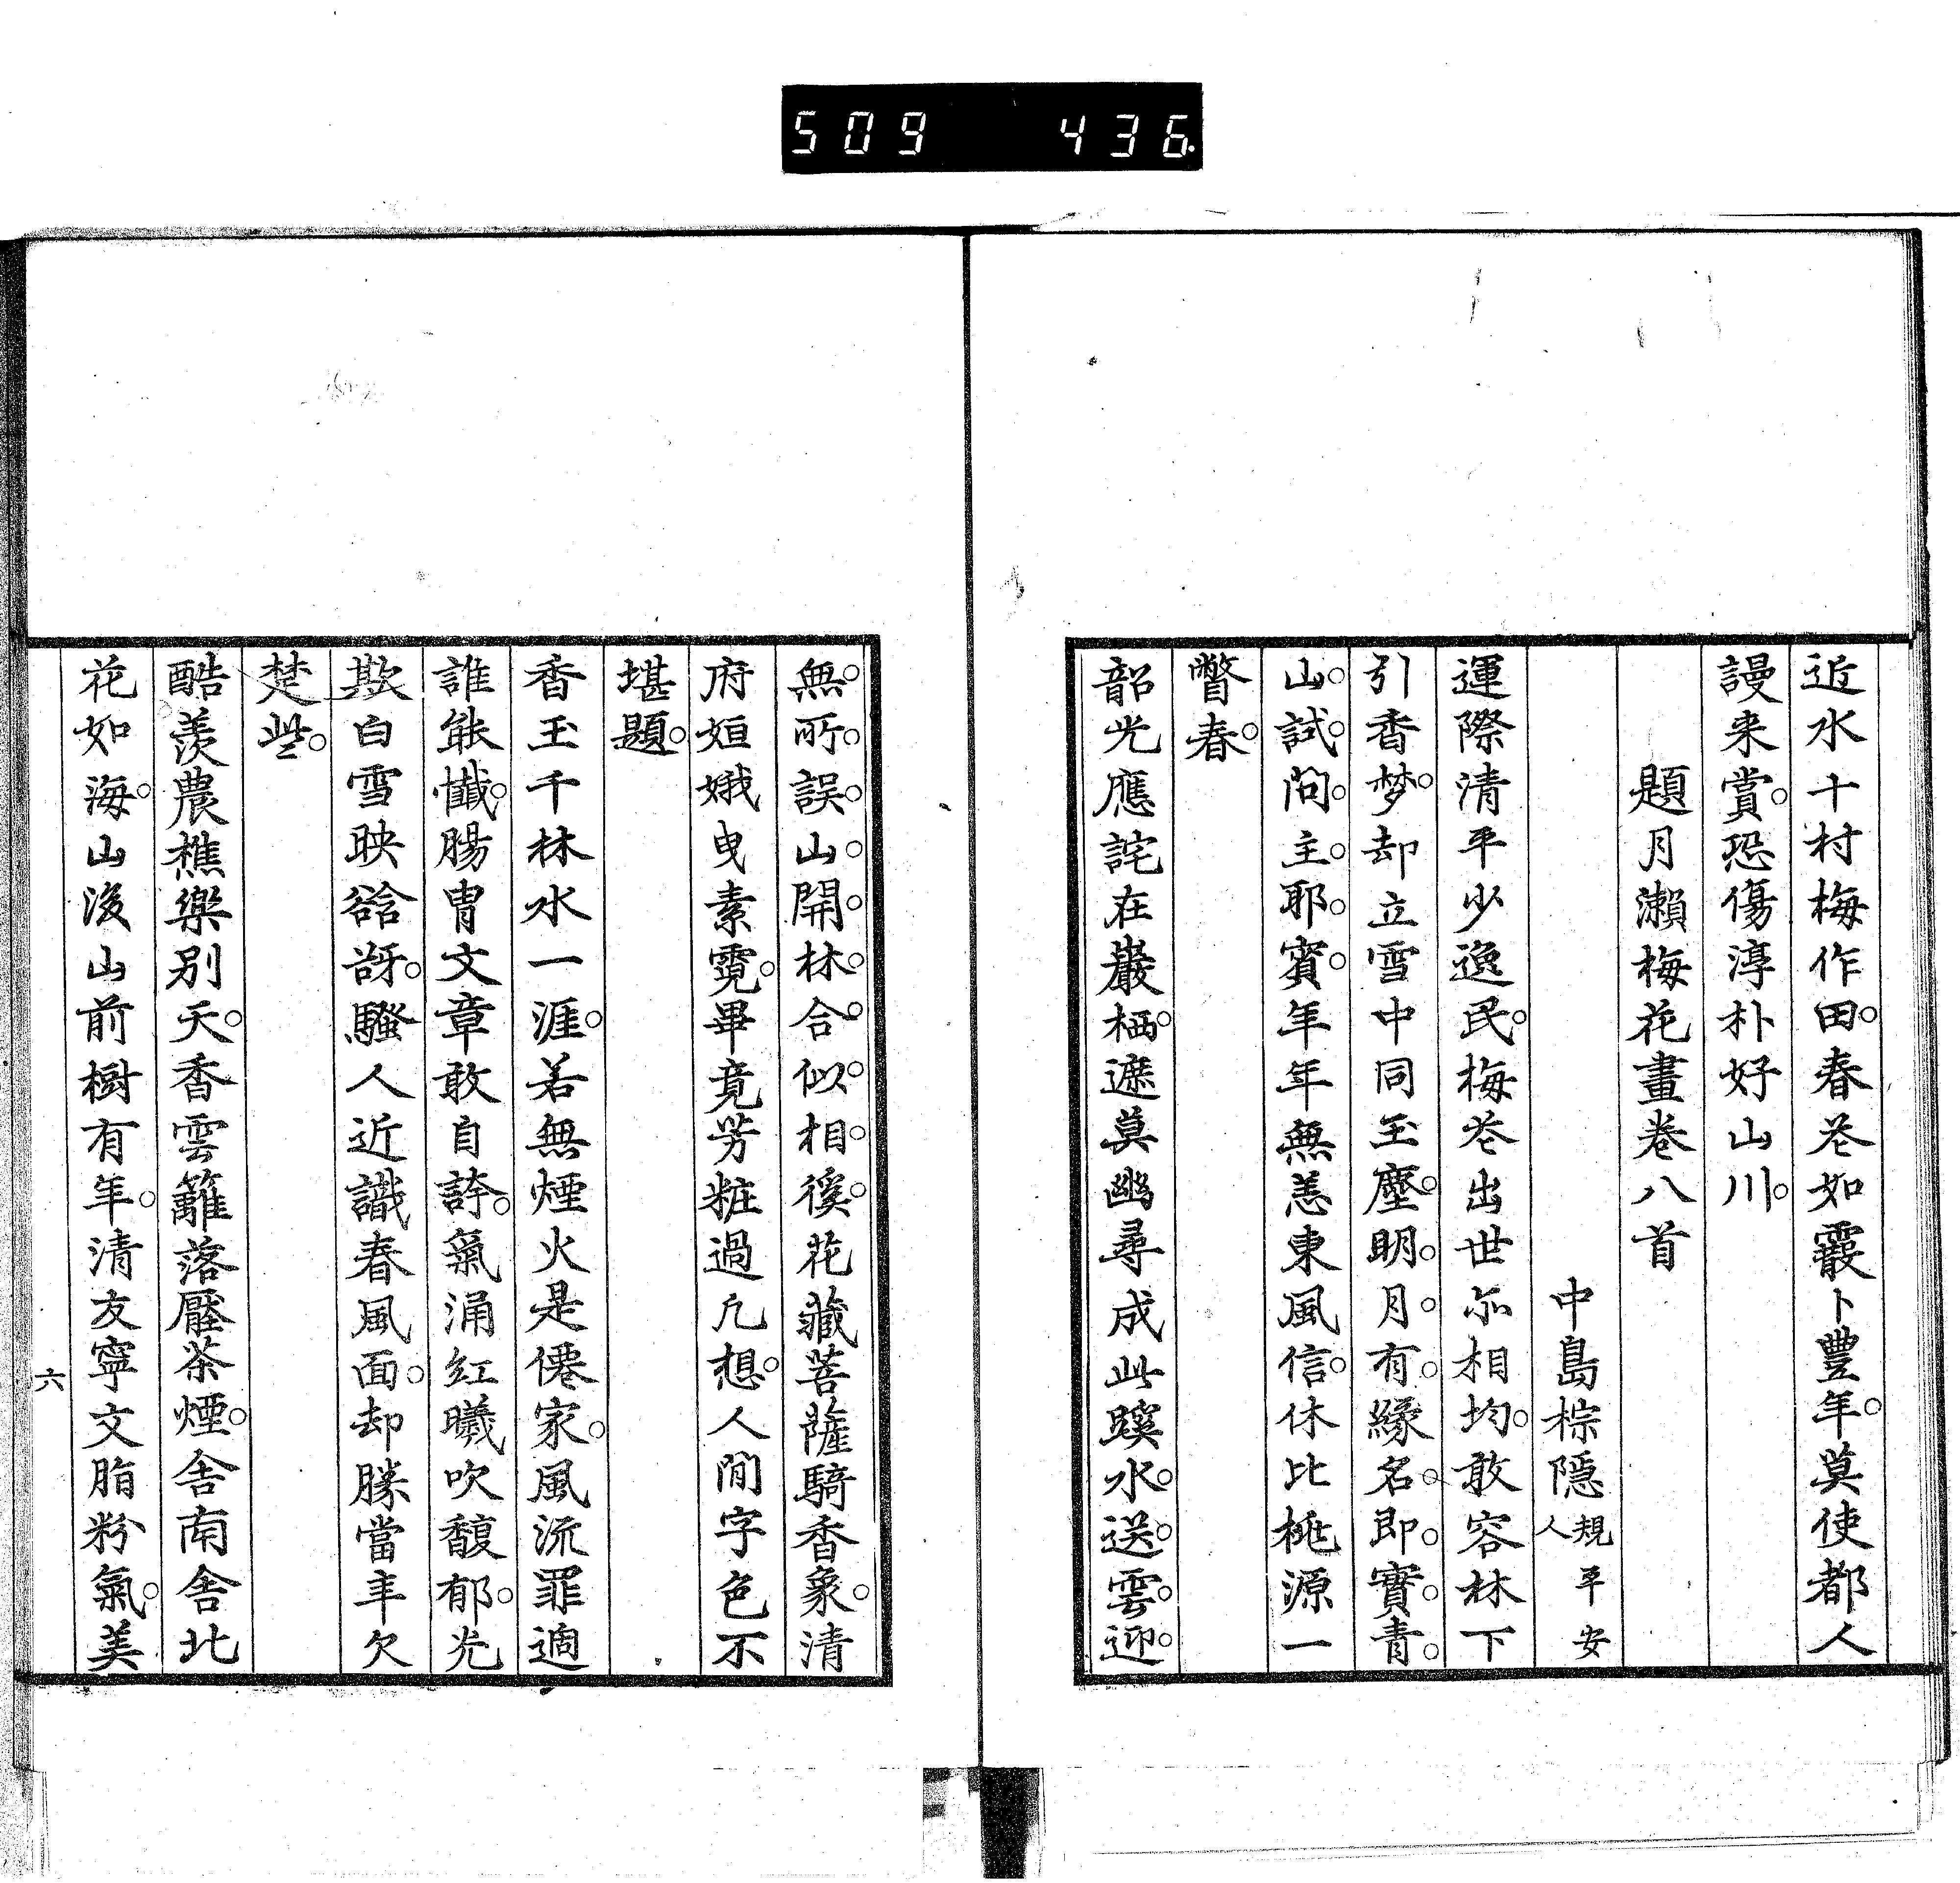 509 436
近水十村梅作田。春花如霰卜豊年。莫使都人
謾来賞。恐傷淳朴好山川。
題月瀬梅花畫卷八首
中島棕隱規平安人
運際清平少逸民。梅花出世亦相均。敢容林下
引香梦。却立雪中同玉塵。明。月。有。緣。名。即。寳。青。
山。試。問。主。耶。賓。年年無恙東風信。休比桃源一
瞥春。
韶光應詫在巖栖。遮莫幽尋成此蹊。水。送。雲。迎。
無。所。誤。山。開。林。合。似。相。徯。花藏菩薩騎香象。清
府姮娥曳素霓。畢竟芳粧過凢想。人間字色不
堪題。
香玉千林水一涯。若無煙火是僊家。風流罪過
誰能懺。腸胃文章敢自誇。氣涌紅曦吹馥郁。光
欺白雪映谽谺。騷人近識春風面。却勝當年欠
楚些。
酷羨農樵樂別天。香雲籬落壓茶煙。舎南舎北
花如海。山後山前樹有年。清友寧文脂粉氣。美
六